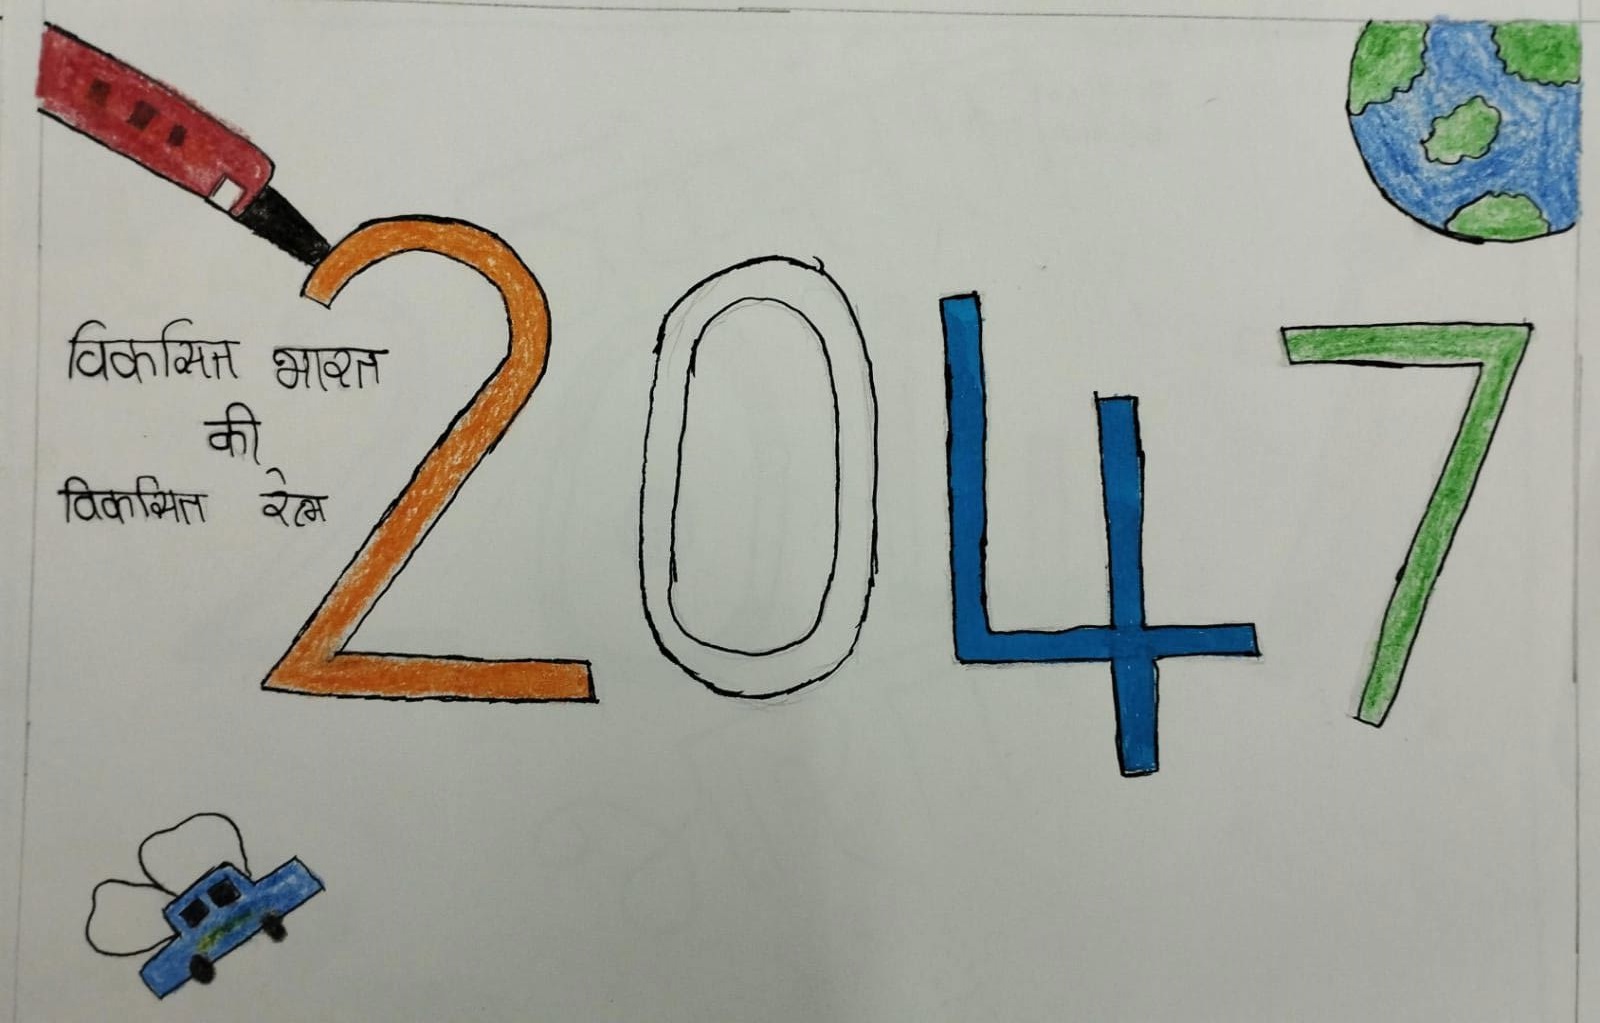 2047
विकसित भारत
की
विकसित रेल